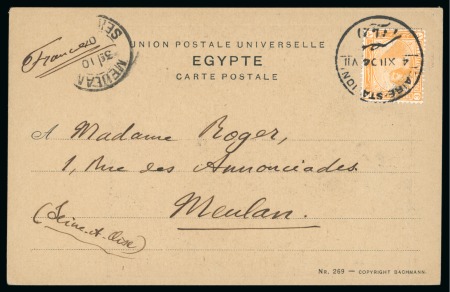 UNION POSTALE UNIVERSELLE
EGYPTE
CARTE POSTALE
MEULAN
CAIRE-STATION
4 XII 04 VII
A Madame Roger,
1, Rue des Annonciades
Meulan.
(Seine-et-Oise)
No. 269 — COPYRIGHT BACHMANN.